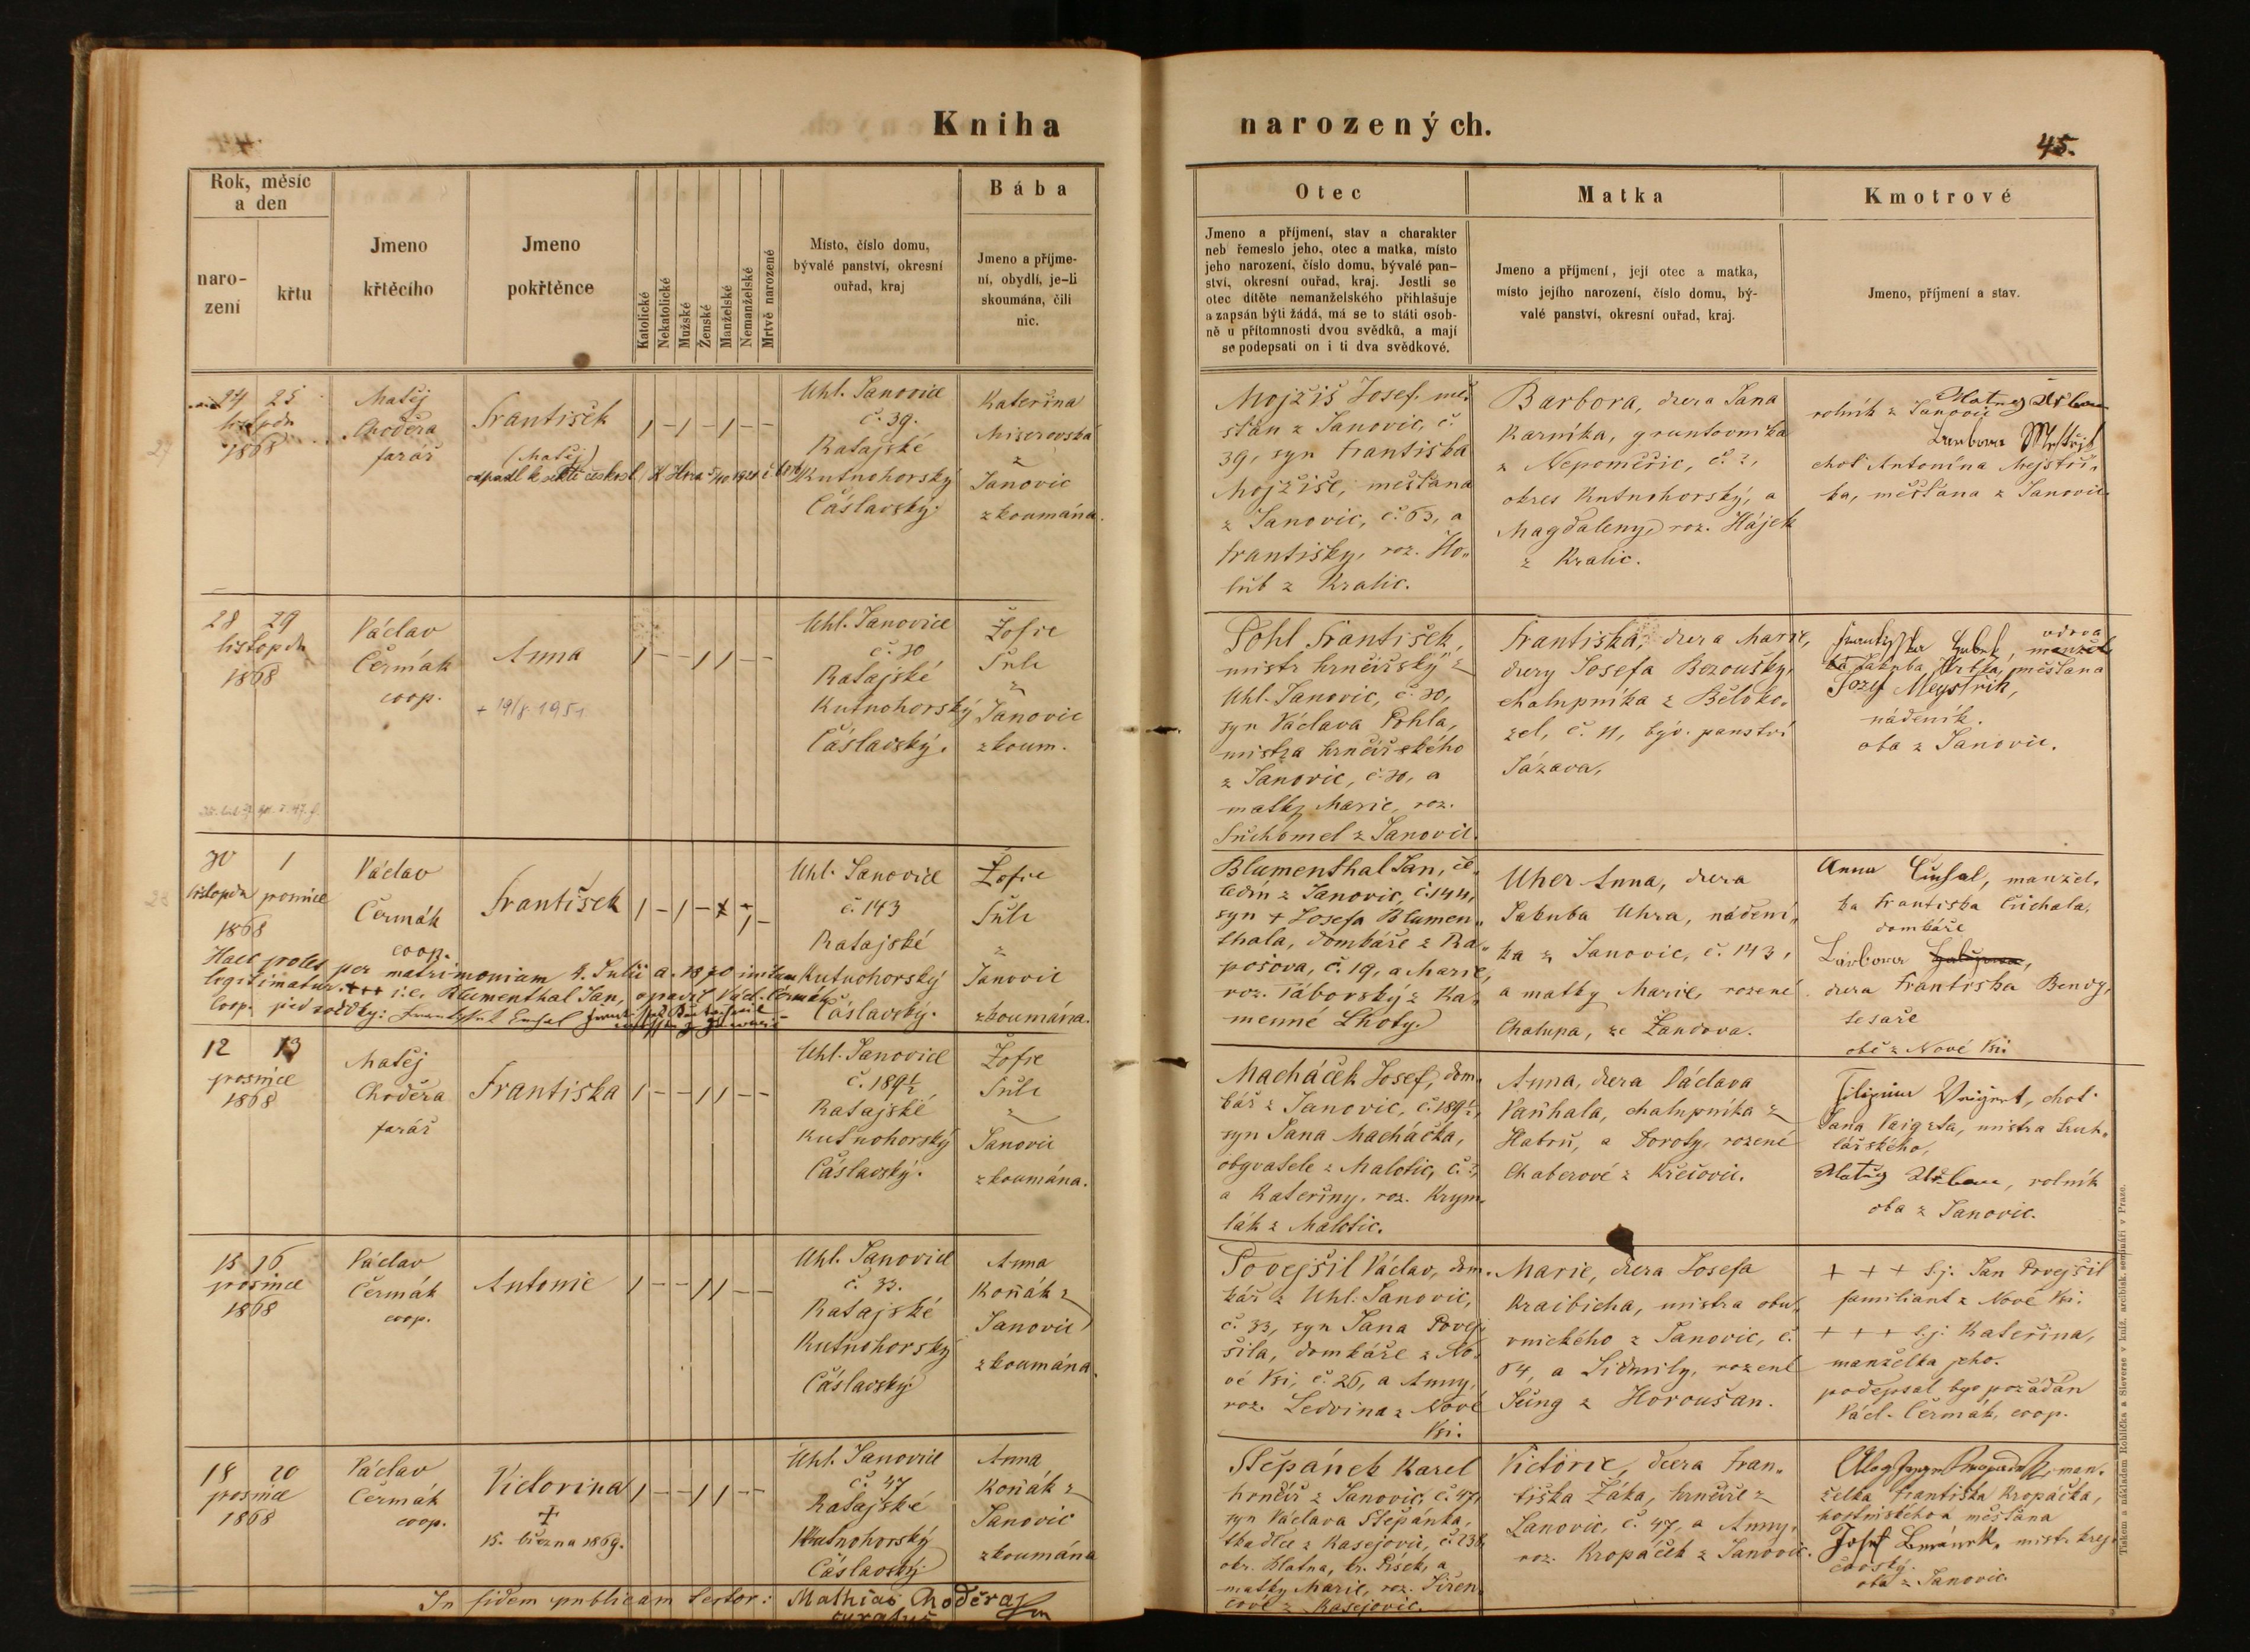 Kniha narozených.
45.
Rok, měsíc a den
naro-
zení
křtu
Jmeno
křtěcího
Jmeno
pokřtěnce
Katolické
Nekatolické
Mužské
Ženské
Manželské
Nemanželské
Mrtvě narozené
Místo, číslo domu,
bývalé panství, okresní
ouřad, kraj
Bába
Jmeno a příjme-
ní, obydlí, je-li
skoumána, čili
nic.
Otec
Jmeno a příjmení, stav a charakter
neb řemeslo jeho, otec a matka, místo
jeho narození, číslo domu, bývalé pan-
ství, okresní ouřad, kraj. Jestli se
otec dítěte nemanželského přihlašuje
a zapsán býti žádá, má se to státi osob-
ně u přítomnosti dvou svědků, a mají
se podepsati on i ti dva svědkové.
Matka
Jmeno a příjmení, její otec a matka,
místo jejího narození, číslo domu, bý-
valé panství, okresní ouřad, kraj.
Kmotrové
Jmeno, příjmení a stav.
24 25
1868
Matěj
Choděra
farář
František
(Matěj)
Uhl. Janovice
č. 39.
Ratajské
Kutnohorský
Čáslavský.
Kateřina
Miserovská
z
Janovic
zkoumána.
Mojžíš Josef, mě-
šťan z Janovic, č.
39, syn Františka
Mojžíše, měšťana
z Janovic, č. 63, a
Františky, roz. Ho„
lub z Kralic.
Barbora, dcera Jana
Karníka, gruntovníka
z Nepoměřic, č. 2,
okres Kutnohorský, a
Magdaleny, roz. Hájek
z Kralic.
rolník z Janovic
choť Antonína Mejstří„
ka, měšťana z Janovic.
28 29
listopdu
1868
Václav
Čermák
coop.
Anna
+ 19/8 1951
Uhl. Janovice
č. 30
Ratajské
Kutnohorský
Čáslavský.
Žofie
Šulc
z
Janovic
zkoum.
Pohl František,
mistr hrnčířský z
Uhl. Janovic, č. 30,
syn Václava Pohla,
mistra hrnčířského
z Janovic, č. 30, a
matky Marie, roz.
Suchomel z Janovic.
Františka, dcera Marie,
dcery Josefa Bezoušky,
chalupníka z Běloko„
zel, č. 11, býv. panství
Sázava.
vdova
Jakuba Hrbka, měšťana
Jozef Mejstřík,
nádeník.
oba z Janovic.
30 1
listopdu prosince
1868
Václav
Čermák
coop.
František
Uhl. Janovice
č. 143
Ratajské
Kutnohorský
Čáslavský.
Žofie
Šulc
z
Janovic
zkoumána.
Haec proles per matrimonium 4. Julii a. 1870 initum
legitimatur. +++ i.e. Blumenthal Jan, opravil Václ. Čermák
coop. před svědky:
Blumenthal Jan, če„
ledín z Janovic, č. 144,
syn + Josefa Blumen„
thala, domkáře z Ra„
pošova, č. 19, a Marie,
roz. Táborský z Ka„
menné Lhoty.
Uher Anna, dcera
Jakuba Uhra, nádení„
ka z Janovic, č. 143,
a matky Marie, rozené
Chalupa, ze Žandova.
manžel„
ka Františka Čuchala,
domkáře
dcera Františka Bendy,
tesaře
obě z Nové Vsi
12 13
prosince
1868
Matěj
Choděra
farář
Františka
Uhl. Janovice
č. 189 1/2
Ratajské
Kutnohorský
Čáslavský.
Žofie
Šulc
z
Janovic
zkoumána.
Macháček Josef, dom„
kář z Janovic, č. 189 1/2,
syn Jana Macháčka,
obyvatele z Malotic, č. 3,
a Kateřiny, roz. Krym„
lák z Malotic.
Anna, dcera Václava
Vaňhala, chalupníka z
Habru, a Doroty, rozené
Chaberové z Křečovic.
choť
Jana Vaigrta, mistra truh„
lářského,
rolník
oba z Janovic.
15 16
prosince
1868
Václav
Čermák
coop.
Antonie
Uhl. Janovice
č. 33.
Ratajské
Kutnohorský
Čáslavský
Anna
Koňák z
Janovic
zkoumána.
Povejšil Václav, dom„
kář z Uhl. Janovic,
č. 33, syn Jana Povej„
šila, domkáře z No„
vé Vsi, č. 26, a Anny,
roz. Ledvina z Nové
Vsi.
Marie, dcera Josefa
Kraibicha, mistra obu„
vnického z Janovic, č.
64, a Lidmily, rozené
Jung z Horoušan.
+ + + t.j. Jan Povejšil
familiant z Nové Vsi.
+ + + t.j. Kateřina,
manželka jeho.
podepsal byv požádán
Václ. Čermák, coop.
18 20
prosince
1868
Václav
Čermák
coop.
Victorina
+
15. března 1869.
Uhl. Janovice
č. 47
Ratajské
Kutnohorský
Čáslavský
Anna
Koňák z
Janovic
zkoumána
Štěpánek Karel
hrnčíř z Janovic, č. 47,
syn Václava Štěpánka,
tkadlce z Kasejovic, č. 138,
okr. Blatna, kr. Písek, a
matky Marie, roz. Siřen„
cové z Kasejovic.
Victorie, dcera Fran„
tiška Žáka, hrnčíře z
Janovic, č. 47, a Anny,
roz. Kropáček z Janovic.
man„
želka Františka Kropáčka,
hostinského a měšťana
mistr krej„
čovský.
oba z Janovic
In fidem publicam testor: Mathias Choděra
curatus
Tiskem a nákladem Rohlíčka a Sieverse v kníž. arcibisk. semináři v Praze.